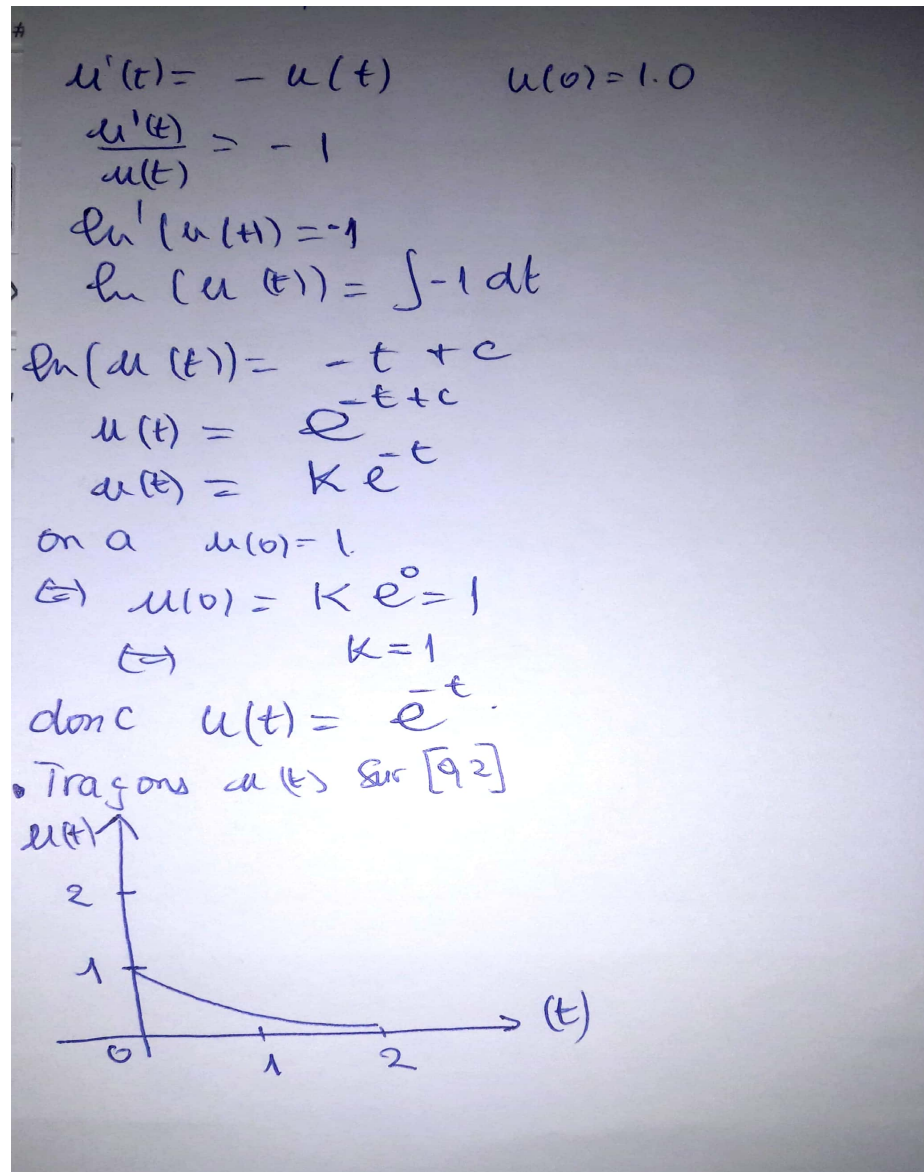 u'(t) = - u(t) u(0) = 1.0
u'(t)/u(t) = - 1
ln'(u(t)) = -1
ln (u(t)) = ∫-1 dt
ln(u(t)) = - t + c
u(t) = e^-t+c
u(t) = K e^-t
on a u(0) = 1.
⇔ u(0) = K e^0 = 1
⇔ K = 1
donc u(t) = e^-t.
• Traçons u(t) sur [0,2]
u(t)
2
1
(t)
0 1 2